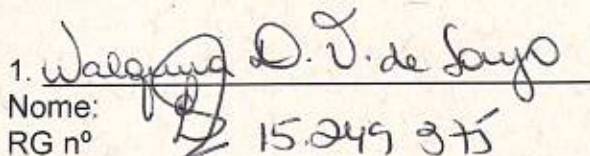 1. Walquiria D. V. de
Nome:
RG nº 15.249 375